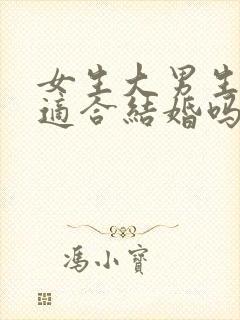 女生大男生
適合結婚嗎
馮小寶